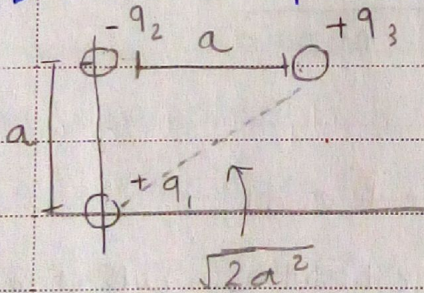 - q₂
a
+ q₃
a
+ q₁
√2a²